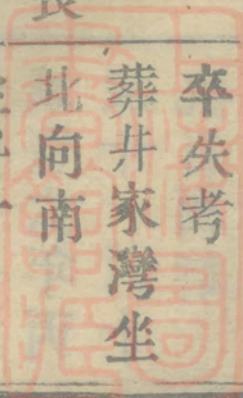 卒失考
葬井家灣坐
北向南